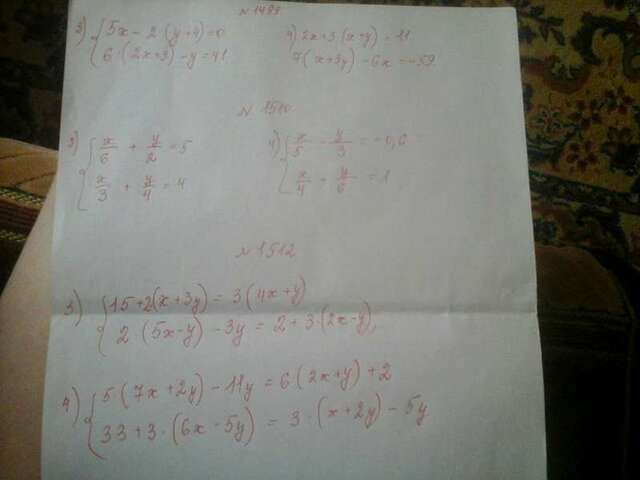 № 1499
2) { 5x - 2·(y+4)=0
6·(2x+3) - y = 41
4) 2x+3·(x+y) = 11
7(x+3y) - 6x = -59
№ 1510
2) { x/6 + y/2 = 5
x/3 + y/4 = 4
4) { x/5 - y/3 = -0,6
x/4 - y/6 = 1
№ 1512
3) { 15+2(x+3y) = 3(4x+y)
2·(5x-y) - 3y = 2+3·(2x-y),
4) { 5(7x+2y) - 11y = 6(2x+y)+2
33+3·(6x-5y) = 3·(x+2y) - 5y